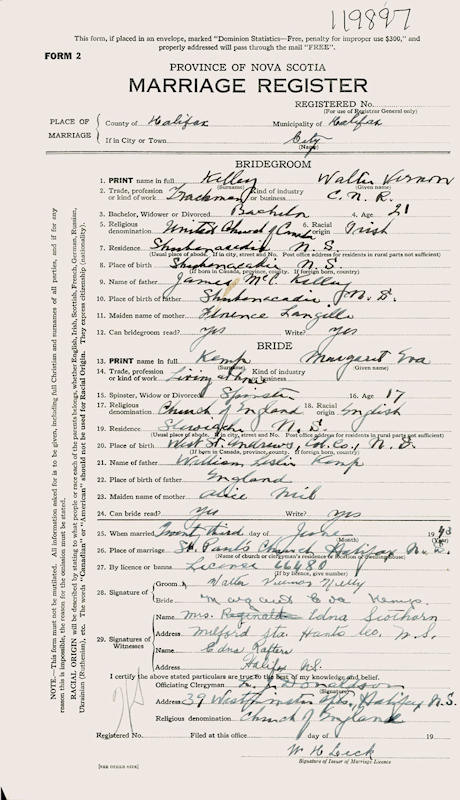 119897
This form, if placed in an envelope, marked "Dominion Statistics—Free, penalty for improper use $300," and
properly addressed will pass through the mail "FREE".
FORM 2
PROVINCE OF NOVA SCOTIA
MARRIAGE REGISTER
REGISTERED No.
(For use of Registrar General only)
PLACE OF MARRIAGE
County of Halifax Municipality of Halifax
If in City or Town City
(Name)
BRIDEGROOM
1. PRINT name in full Kelley Walter Vernon
(Surname) (Given name)
2. Trade, profession or kind of work Trackman Kind of industry or business C. N. R.
3. Bachelor, Widower or Divorced Bachelor 4. Age 21
5. Religious denomination United Church of Canada 6. Racial origin Irish
7. Residence Shubenacadie N. S.
(Usual place of abode. If in city, street and No. Post office address for residents in rural parts not sufficient)
8. Place of birth Shubenacadie N. S.
(If born in Canada, province, county. If foreign born, country)
9. Name of father James Mc C. Kelley
10. Place of birth of father Shubenacadie N. S.
11. Maiden name of mother Florence Langille
12. Can bridegroom read? yes Write? yes
BRIDE
13. PRINT name in full Kemp Margaret Eva
(Surname) (Given name)
14. Trade, profession or kind of work Living at home Kind of industry or business
15. Spinster, Widow or Divorced Spinster 16. Age 17
17. Religious denomination Church of England 18. Racial origin English
19. Residence N. S.
(Usual place of abode. If in city, street and No. Post office address for residents in rural parts not sufficient)
20. Place of birth West St. Andrews, Col. Co., N. S.
(If born in Canada, province, county. If foreign born, country)
21. Name of father William Leslie Kemp
22. Place of birth of father England
23. Maiden name of mother Alice
24. Can bride read? Yes Write? Yes
25. When married third day of June 1943
26. Place of marriage St. Paul's Church Halifax N. S.
(Name of church or clergyman's residence or
27. By licence or banns License 66480
(If by licence, give number)
28. Signature of
Groom Walter Vernon Kelley
Bride Margaret Eva Kemp.
29. Signatures of Witnesses
Name Mrs. Reginald Edna Scothorn
Address Milford Sta. Hants Co. N. S.
Name Edna
Address Halifax N.S.
I certify the above stated particulars are true to the best of my knowledge and belief.
Officiating Clergyman Donaldson
(Signature)
Address 39 Westminster Apts, Halifax N.S.
Religious denomination Church of England
Registered No. Filed at this office day of 19
W H
Signature of Issuer of Marriage Licence
[SEE OTHER SIDE]
NOTE.—This form must not be mutilated. All information asked for is to be given, including full Christian and surnames of all parties, and if for any
reason this is impossible, the reason for the omission must be stated.
RACIAL ORIGIN will be described by stating to what people or race each of the parents belongs, whether English, Irish, Scottish, French, German, Russian,
Ukrainian (Ruthenian), etc. The words "Canadian" or "American" should not be used for Racial Origin. They express citizenship (nationality).